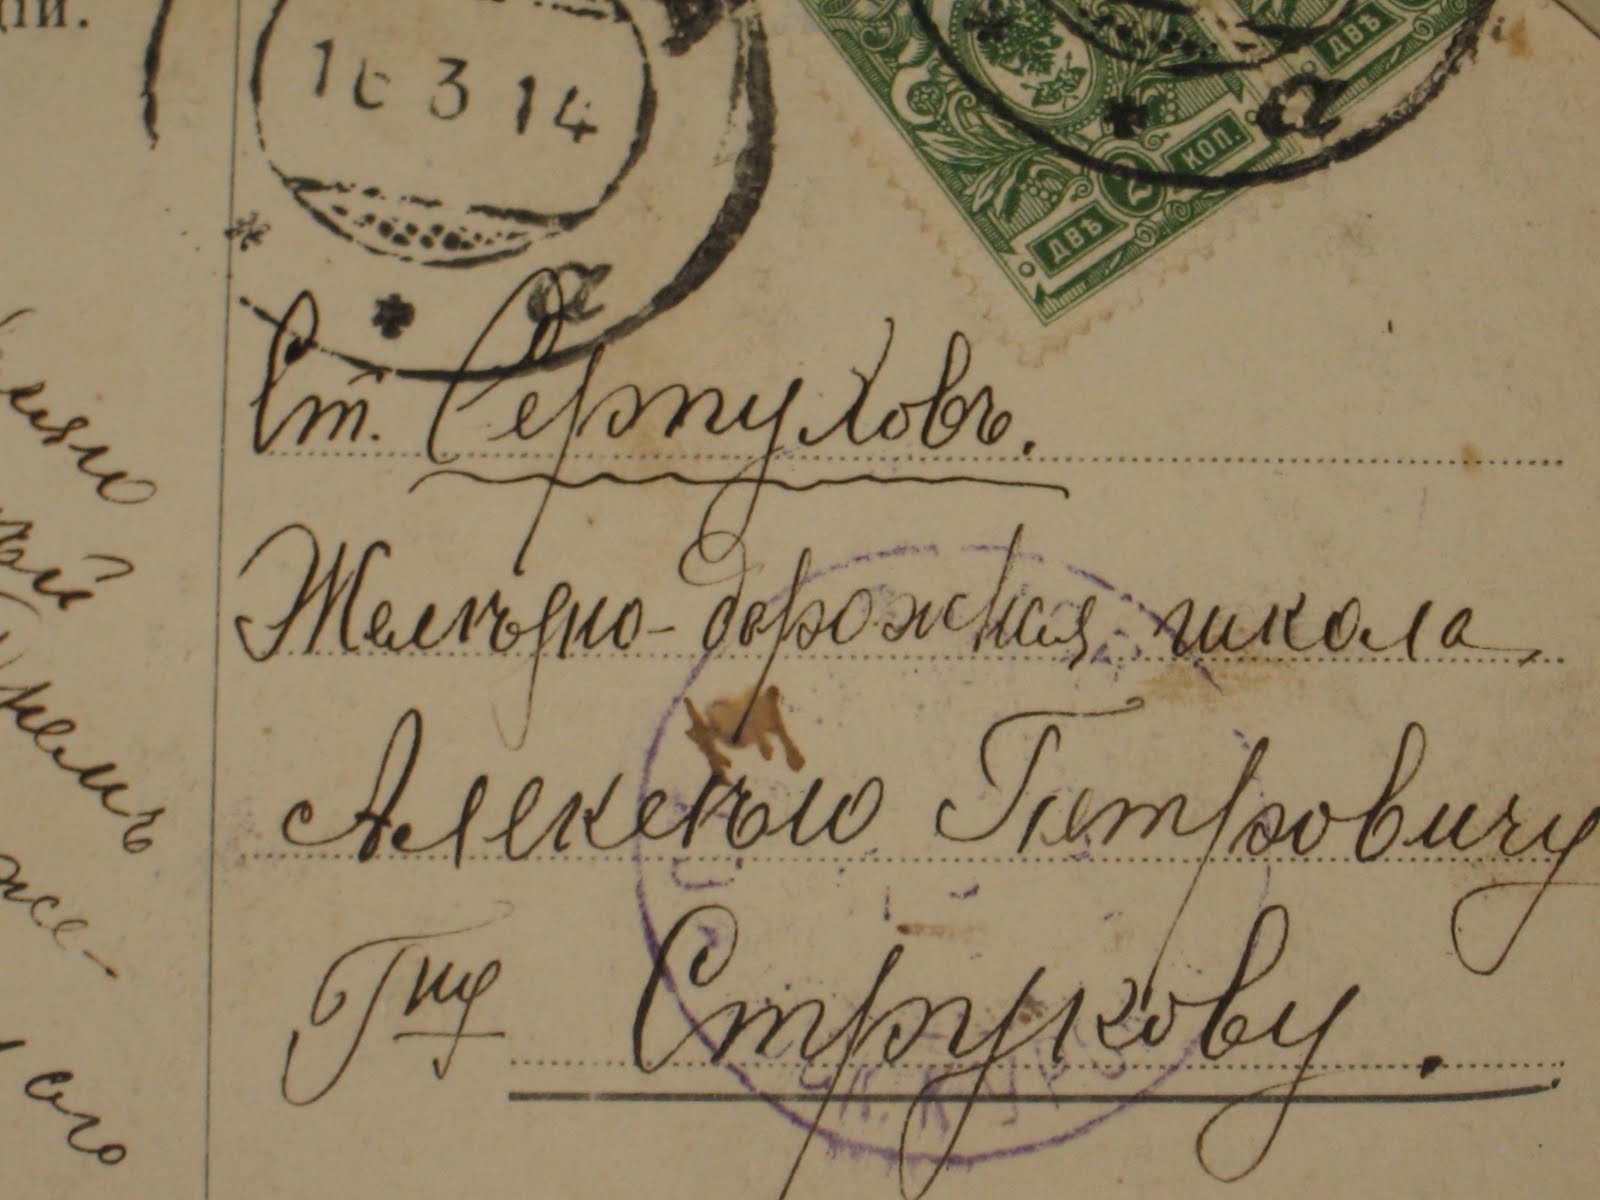 ціи.
16 3 14
а
ДВѢ 2 КОП. ДВѢ
а
Ст. Серпуховъ.
Желѣзно-дорожная школа,
Алексѣю Петровичу
Гну Струкову.
же-
его